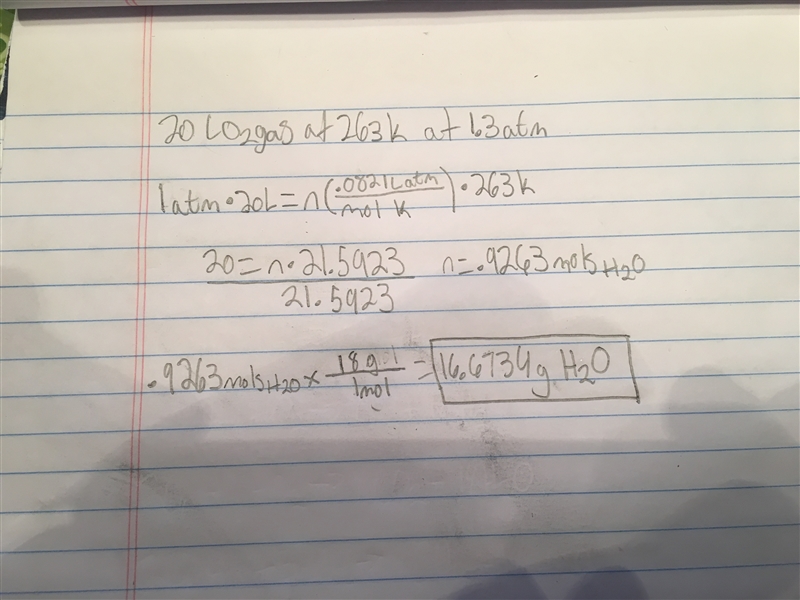 20 LO2gas at 263k at 1.3atm
1atm•20L=n(.0821Latm/mol k)•263k
20=n•21.5923/21.5923 n=.9263mols H2O
.9263mols H2O x 18g/1mol = 16.6734g H2O